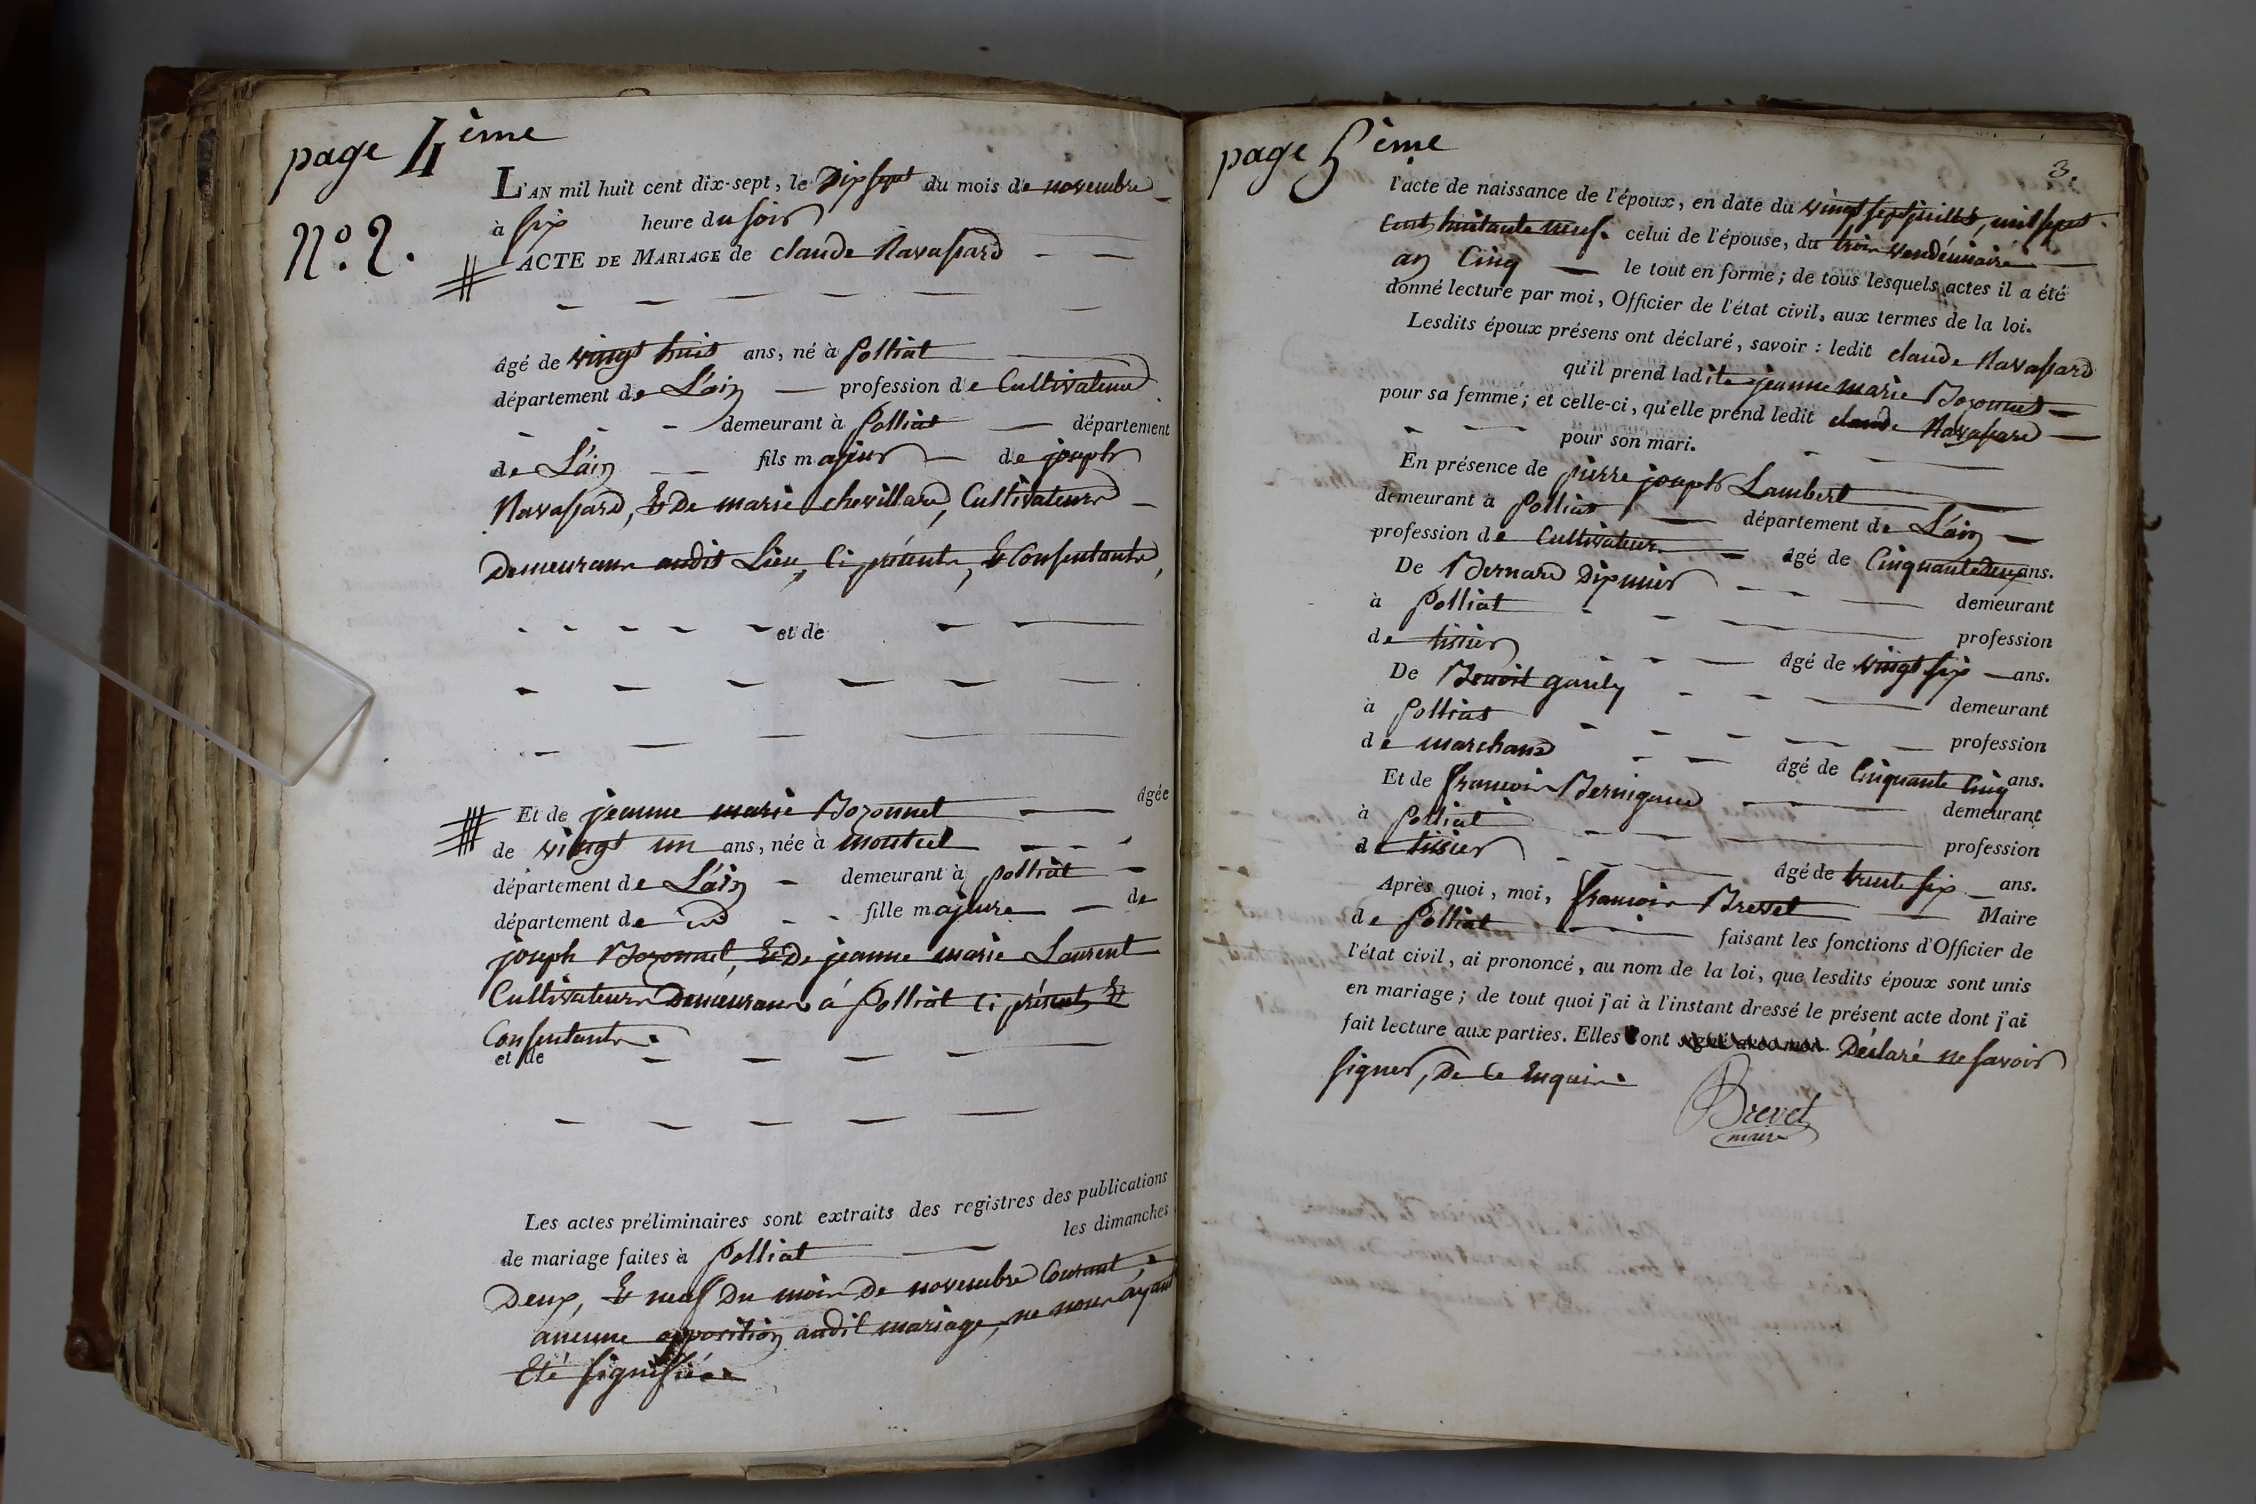 page 4ème
L'AN mil huit cent dix-sept, le Dix sept du mois de novembre
à six heure du soir
N.º 2.
ACTE DE MARIAGE de claude Navassard
âgé de vingt huit ans, né à Polliat
département de L'ain profession de Cultivateur
demeurant à Polliat département
de L'ain fils majeur de joseph
Navassard, Et De marie chevillard, Cultivateurs
Demeurans audit Lieu, Ci présents, Et Consentants,
et de
Et de jeanne marie Bozonnet âgée
de vingt un ans, née à montcel
département de L'ain demeurant à polliat
département de id fille majeure de
joseph Bozonnet, Et De jeanne marie Laurent
Cultivateurs Demeurans á Polliat Ci présents Et
Consentants.
et de
Les actes préliminaires sont extraits des registres des publications
de mariage faites à Polliat les dimanches
Deux, Et neuf Du mois De novembre Courant,
aucune opposition audit mariage, ne nous áyant
Eté signifiée
page 5ème
3.
l'acte de naissance de l'époux, en date du vingt sept juillet, mil sept
Cent huitante neuf. celui de l'épouse, du trois vendémiaire
an Cinq le tout en forme; de tous lesquels actes il a été
donné lecture par moi, Officier de l'état civil, aux termes de la loi.
Lesdits époux présens ont déclaré, savoir: ledit claude Navassard
qu'il prend ladite jeanne marie Bozonnet
pour sa femme; et celle-ci, qu'elle prend ledit claude Navassard
pour son mari.
En présence de pierre joseph Lambert
demeurant à Polliat département de L'ain
profession de Cultivateur âgé de Cinquante deux ans.
De Bernard Dixmier demeurant
à Polliat profession
de tissier âgé de vingt six ans.
De Benoit gauly demeurant
à Polliat profession
de marchand âgé de Cinquante Cinq ans.
Et de francois Bernigaud demeurant
à Polliat profession
de tissier âgé de trente six ans.
Après quoi, moi, francois Brevet Maire
de Polliat faisant les fonctions d'Officier de
l'état civil, ai prononcé, au nom de la loi, que lesdits époux sont unis
en mariage; de tout quoi j'ai à l'instant dressé le présent acte dont j'ai
fait lecture aux parties. Elles ont signé avec moi. Déclaré ne savoir
signer, De Ce Enquis
Brevet
maire